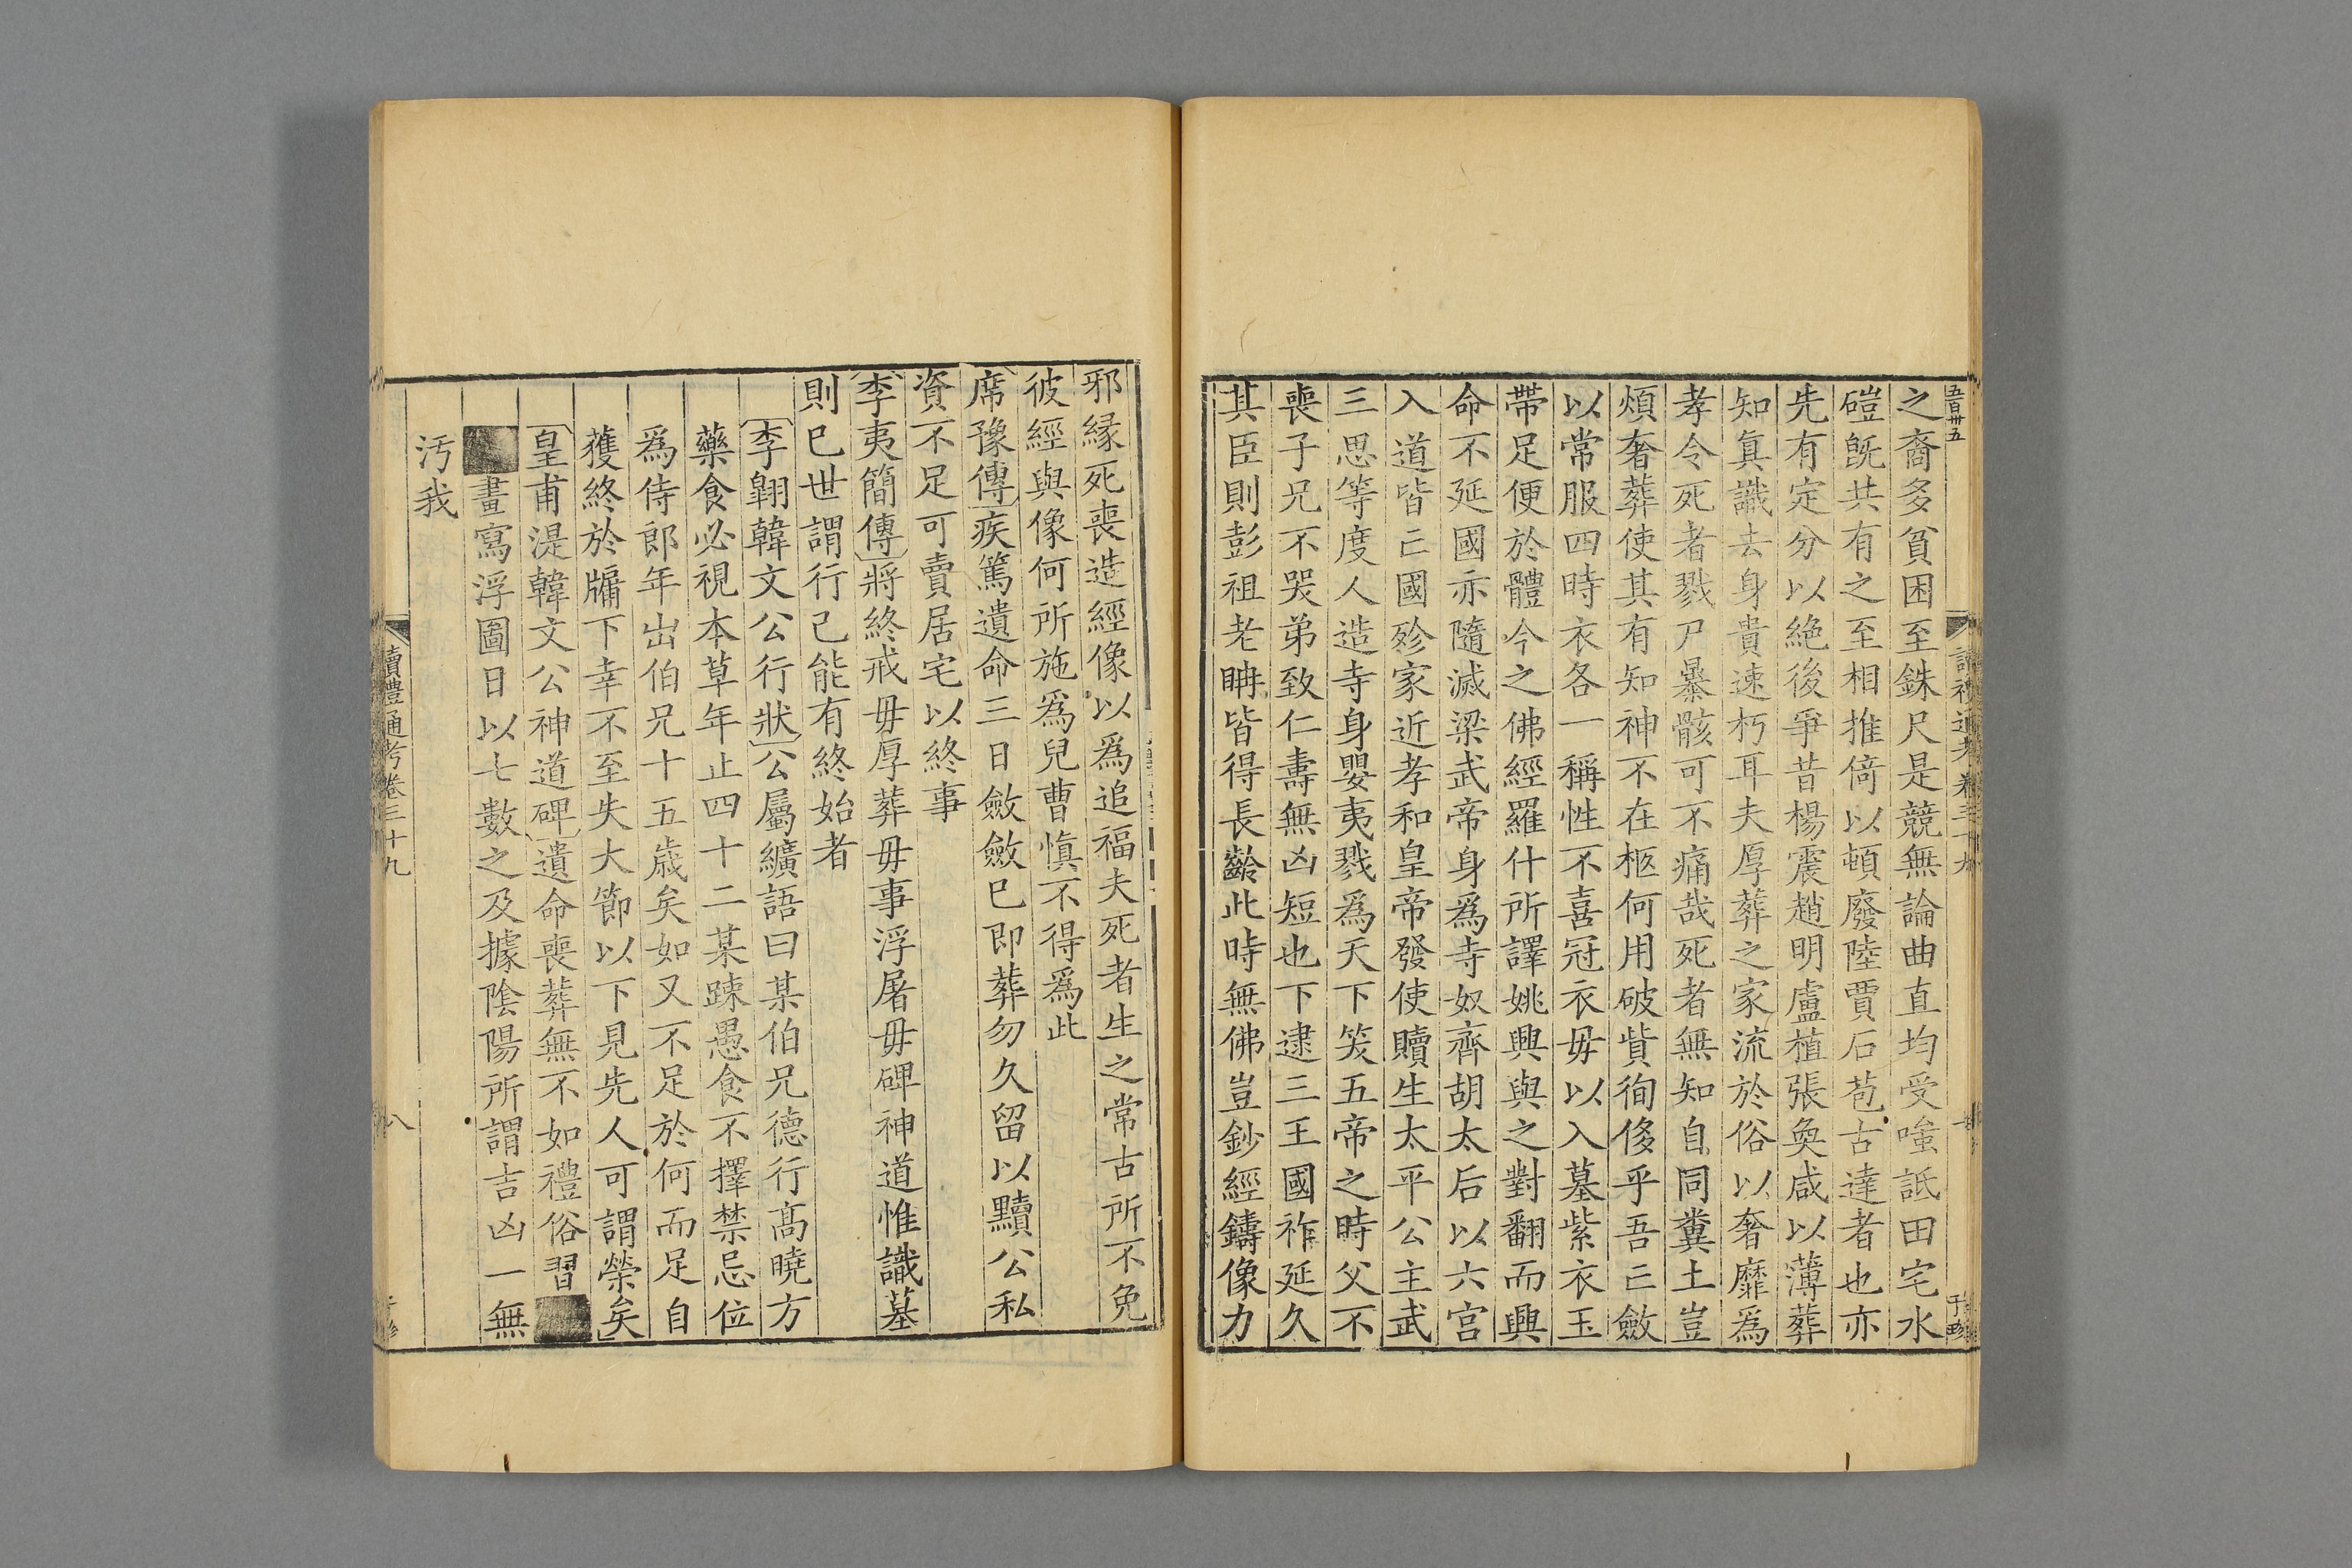 五百卅五
之裔多貧困至銖尺是競無論曲直均受嗤詆田宅水
磑旣共有之至相推倚以頓廢陸賈石苞古達者也亦
先有定分以絶後爭昔楊震趙明盧植張奐咸以薄葬
知眞識去身貴速朽耳夫厚葬之家流於俗以奢靡爲
孝令死者戮尸暴骸可不痛哉死者無知自同糞土豈
煩奢葬使其有知神不在柩何用破貲徇侈乎吾亡斂
以常服四時衣各一稱性不喜冠衣毋以入墓紫衣玉
帶足便於體今之佛經羅什所譯姚興與之對翻而興
命不延國亦隨滅梁武帝身爲寺奴齊胡太后以六宮
入道皆亡國殄家近孝和皇帝發使贖生太平公主武
三思等度人造寺身嬰夷戮爲天下笑五帝之時父不
喪子兄不哭弟致仁壽無凶短也下逮三王國祚延久
其臣則彭祖老聃皆得長齡此時無佛豈鈔經鑄像力
邪緣死喪造經像以爲追福夫死者生之常古所不免
彼經與像何所施爲兒曹愼不得爲此
席豫傳疾篤遺命三日斂斂已即葬勿久留以黷公私
資不足可賣居宅以終事
李夷簡傳將終戒毋厚葬毋事浮屠毋碑神道惟識墓
則已世謂行己能有終始者
李翺韓文公行狀公屬纊語曰某伯兄德行高曉方
藥食必視本草年止四十二某踈愚食不擇禁忌位
爲侍郎年出伯兄十五歲矣如又不足於何而足自
獲終於牖下幸不至失大節以下見先人可謂榮矣
皇甫湜韓文公神道碑遺命喪葬無不如禮俗習
畫寫浮圖日以七數之及據陰陽所謂吉凶一無
汚我
讀禮通考卷三十九
八